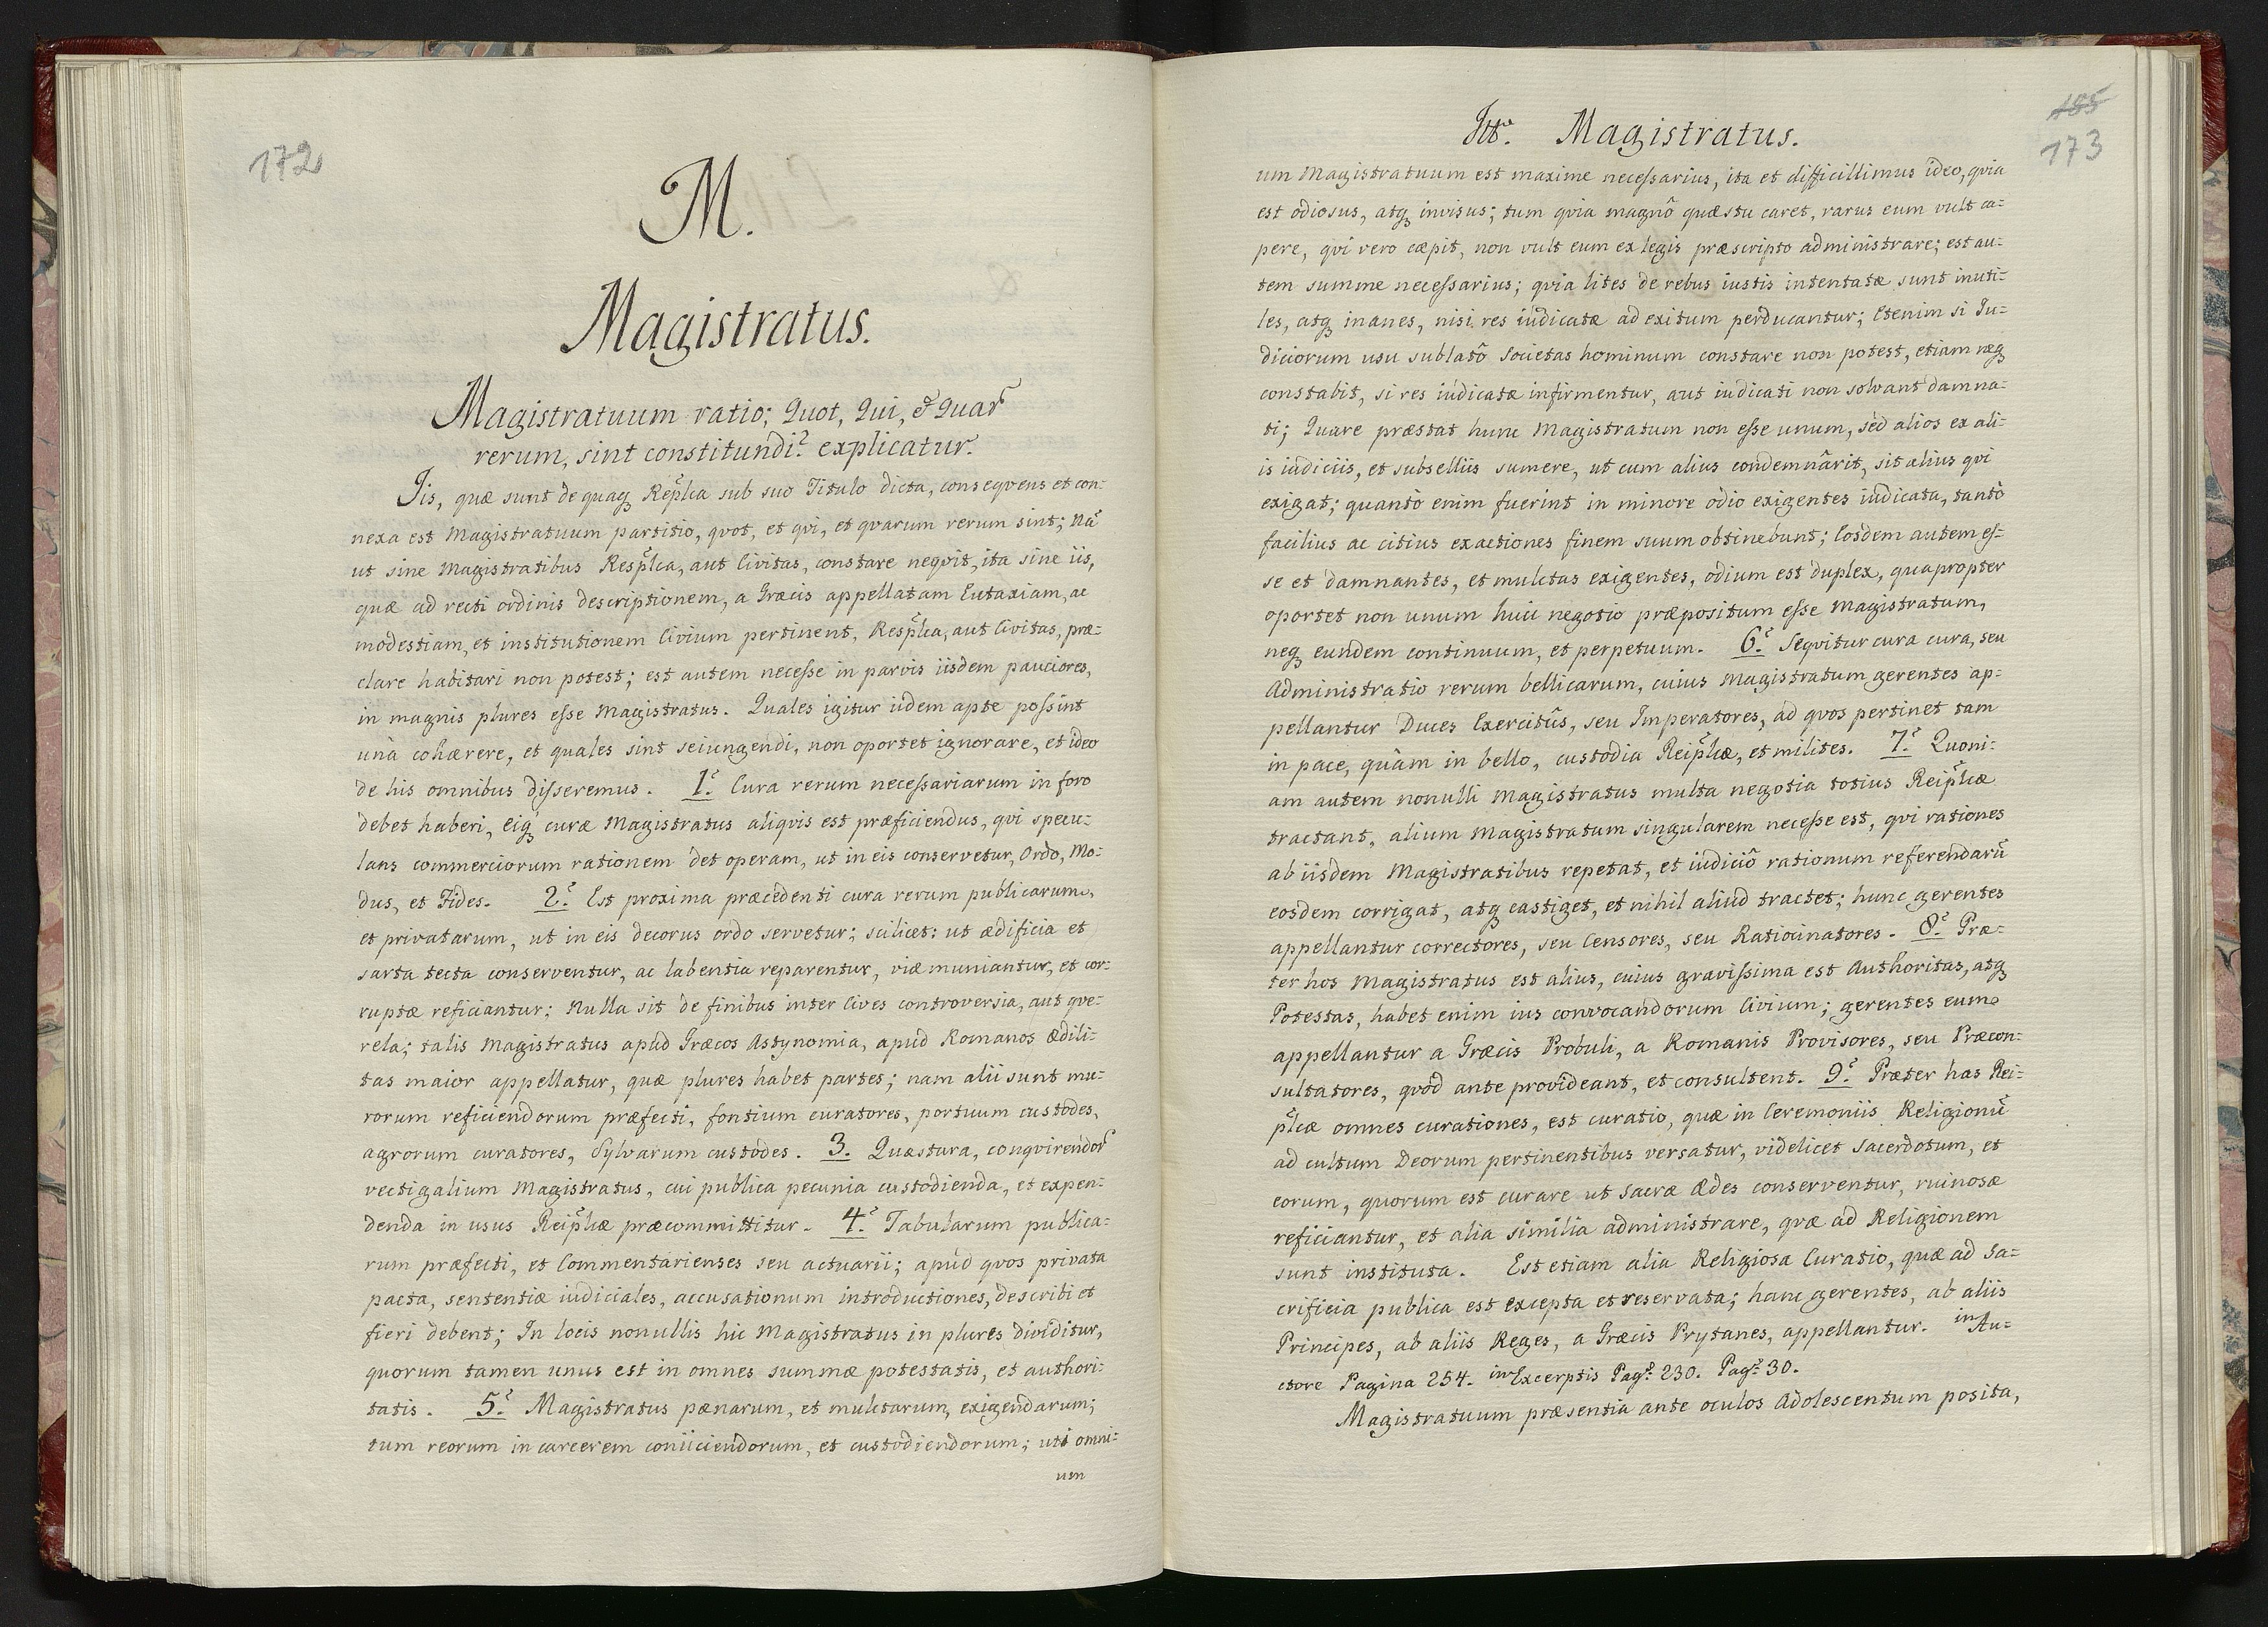 172
M.
Magistratus.
Magistratuum ratio; Quot, Qui, & Quar
rerum, sint constitundi? explicatur.
Iis, quæ sunt de quaq Rep̃lca sub suo Titulo dicta, conseqvens et con:
nexa est Magistratuum partitio, qvot, et qvi, et qvarum rerum sint; Nã
ut sine Magistratibus Resp̃lca, aut Civitas, constare neqvit, ita sine iis,
quæ ad recti ordinis descriptionem, a Græcis appellatam Eutaxiam, ac
modestiam, et institutionem Civium pertinent, Resp̃lca, aut Civitas, præ:
clare habitari non potest; est autem necesse in parvis iisdem pauciores,
in magnis plures esse Magistratus. Quales igitur iidem apte possint
unà cohærere, et quales sint seiungendi, non oportet ignorare, et ideo
de his omnibus disseremus. 1. Cura rerum necessariarum in foro
debet haberi, eiq curæ Magistratus aliqvis est præficiendus, qvi specu:
lans commerciorum rationem det operam, ut in eis conservetur, Ordo, Mo:
dus, et Fides. 2. Est proxima præcedenti cura rerum publicarum,
et privatarum, ut in eis decorus ordo servetur; scilicet: ut ædificia et
sarta tecta conserventur, ac labentia reparentur, viæ muniantur, et cor:
ruptæ reficiantur; Nulla sit de finibus inter Cives controversia, aut qve:
rela; talis Magistratus apud Græcos Astynomia, apud Romanos Ædili:
tas maior appellatur, quæ plures habet partes; nam alii sunt mu:
rorum reficiendorum præfecti, fontium curatores, portuum custodes,
agrorum curatores, Sylvarum custodes. 3. Quæstura, conqvirendor
vectigalium Magistratus, cui publica pecunia custodienda, et expen:
denda in usus Reip̃lcæ præcommittitur. 4. Tabularum publica:
rum præfecti, et Commentarienses seu actuarii; apud qvos privata
pacta, sententiæ iudiciales, accusationum introductiones, describi et
fieri debent; In locis nonullis hic Magistratus in plures dividitur,
quorum tamen unus est in omnes summæ potestatis, et authori:
tatis. 5. Magistratus pænarum, et mulctarum, exigendarum;
tum reorum in carcerem coniiciendorum, et custodiendorum; uti omni:
um
Magistratus.
185
173
um Magistratuum est maxime necessarius, ita et difficillimus ideo, qvia
est odiosus, atq invisus; tum qvia magnô quæstu caret, rarus eum vult ca:
pere, qvi vero cæpit, non vult eum ex legis præscripto administrare; est au:
tem summe necessarius; qvia lites de rebus iustis intentatæ sunt inuti:
les, atq inanes, nisi res iudicatæ ad exitum perducantur; Etenim si Iu:
diciorum usu sublatô Societas hominum constare non potest, etiam neq
constabit, si res iudicatæ infirmentur, aut iudicati non solvant damna:
ti; Quare præstat hunc Magistratum non esse unum, sed alios ex ali:
is iudiciis, et subselliis sumere, ut cum alius condemnârit, sit alius qvi
exigat; quantò enim fuerint in minore odio exigentes iudicata, tantò
facilius ac citius exactiones finem suum obtinebunt; Eosdem autem es:
se et damnantes, et mulctas exigentes, odium est duplex, quapropter
oportet non unum huic negotio præpositum esse Magistratum,
neq eundem continuum, et perpetuum. 6. Seqvitur cura cura, seu
Administratio rerum bellicarum, cuius Magistratum gerentes ap:
pellantur Duces Exercitûs, seu Imperatores, ad qvos pertinet tam
in pace, quàm in bello, custodia Reip̃lcæ, et milites. 7. Quoni:
am autem nonulli Magistratus multa negotia totius Reip̃lcæ
tractant, alium Magistratum singularem necesse est, qvi rationes
ab iisdem Magistratibus repetat, et iudiciô rationum referendarũ
eosdem corrigat, atq castiget, et nihil aliud tractet; hunc gerentes
appellantur correctores, seu Censores, seu Ratiocinatores. 8. Præ:
ter hos Magistratus est alius, cuius gravissima est Authoritas, atq
Potestas, habet enim ius convocandorum Civium; gerentes eum
appellantur a Græcis Probuli, a Romanis Provisores, seu Præcon:
sultatores, qvod ante provideant, et consultent. 9. Præter has Rei:
p̃lcæ omnes curationes, est curatio, quæ in Ceremoniis Religionũ
ad cultum Deorum pertinentibus versatur, videlicet Sacerdotum, et
eorum, quorum est curare ut Sacræ Ædes conserventur, ruinosæ
reficiantur, et alia similia administrare, qvæ ad Religionem
sunt instituta. Est etiam alia Religiosa Curatio, quæ ad Sa:
crificia publica est excepta et reservata; hanc gerentes, ab aliis
Principes, ab aliis Reges, a Græcis Prytanes, appellantur. in Au:
ctore Pagina 254. in Excerptis Pag: 230. Pag: 30.
Magistratuum præsentia ante oculos Adolescentum posita,